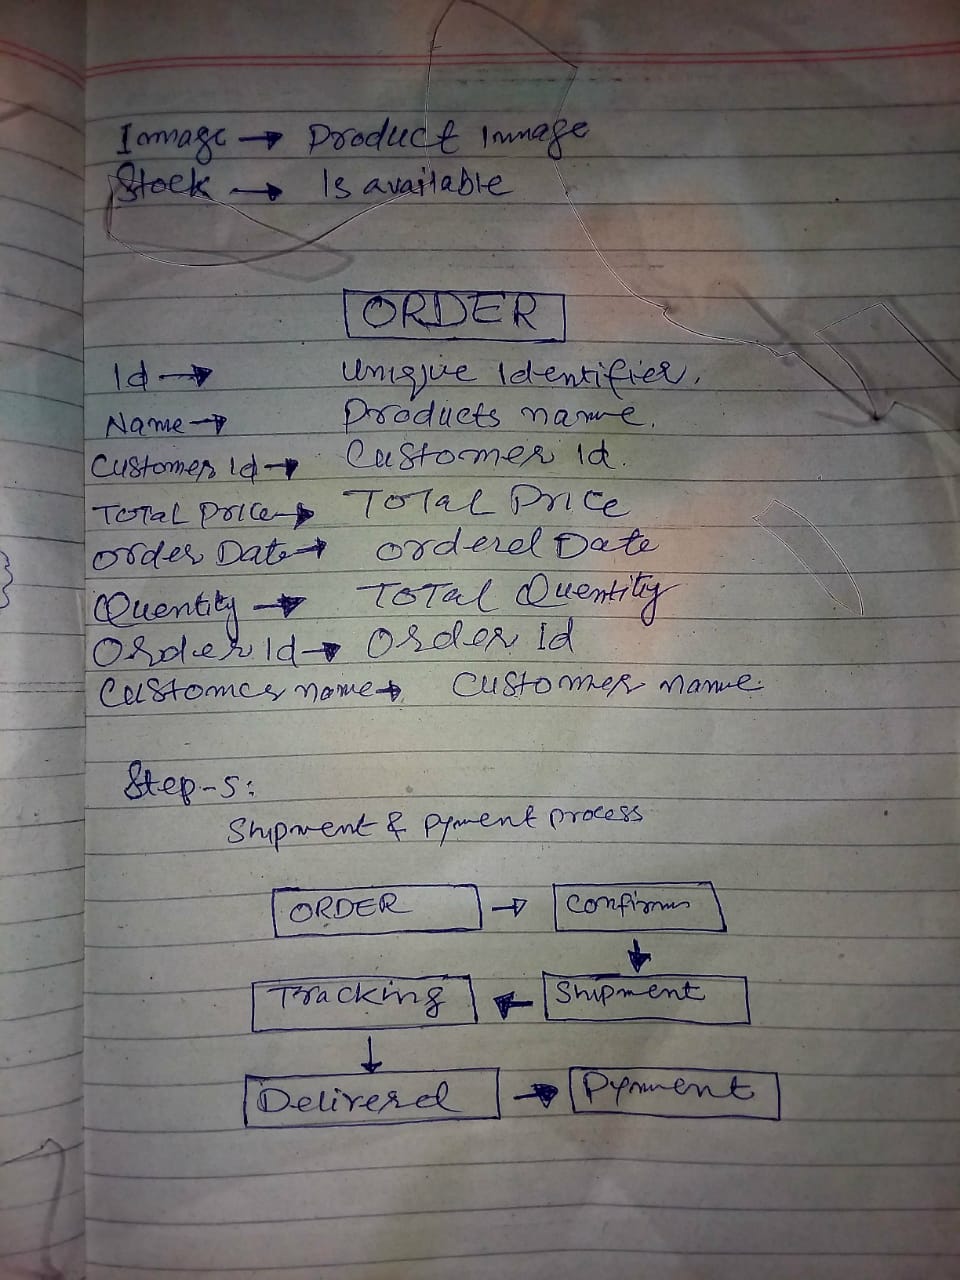 Immage → Product Immage
Stock → Is available
ORDER
Id → Uniqiue Identifier.
Name → Products name.
Customer Id → Customer id.
Total Price → Total Price
Order Date → Ordered Date
Quentity → Total Quentity
Order Id → Order Id
Customer name → Customer name.
Step-5:
Shipment & Pyment process
ORDER → Confirm
↓
Tracking ← Shipment
↓
Delivered → Pyment